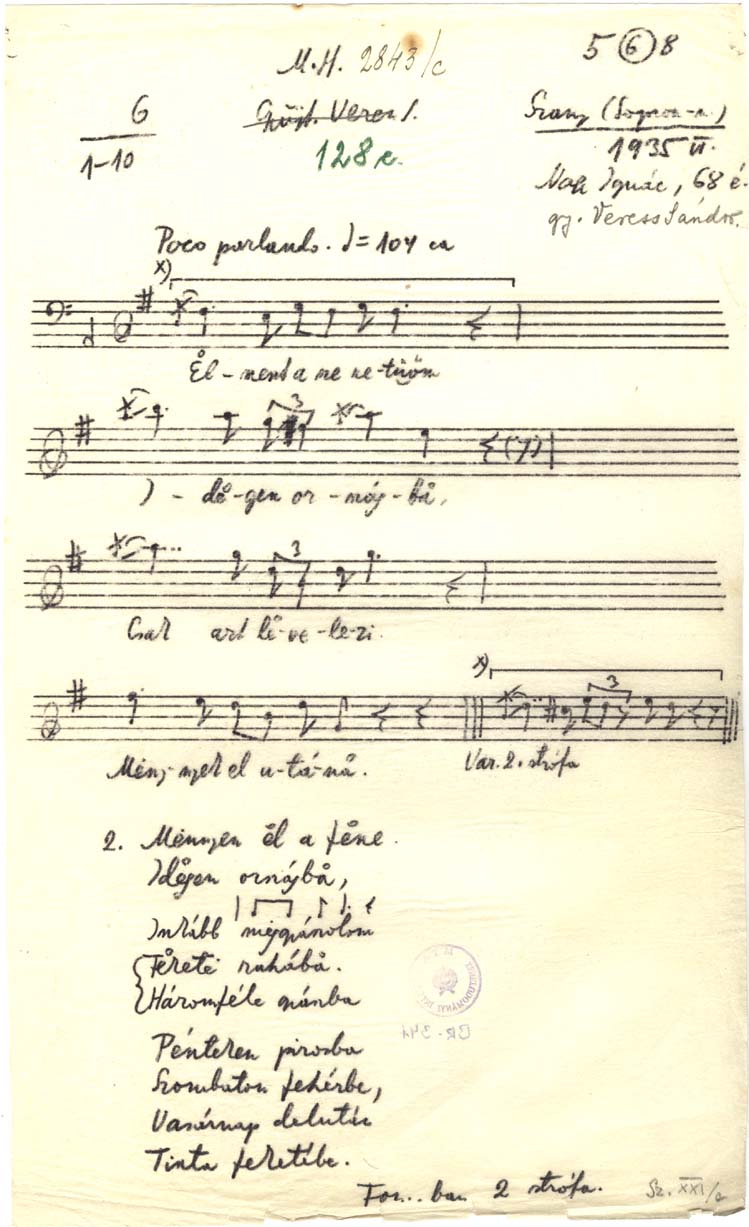 M.H. 2843/c
5 6 8
6
1-10
Gyüjt. Veress S.
128 e.
Szany (Sopron-m.)
1935 VI.
Ignác, 68 é.
gy. Veress Sándor.
Poco parlando. ♩= 104 ca
x)
Ël-ment a
3
I-dë-gen or-száj-bå,
3
Csak azt lë-ve-le-zi.
x)
3
Mënj-nyek el u-tá-nå.
Var. 2. strófa
2. Mënnyen ël a fene
Idëgen orszájbå,
Inkább mëjgyászolom
Fëkete ruhábå.
Háromféle gyászba
Pénteken pirosba
Szombaton fehérbe,
Vasárnap delután
Tinta feketébe.
Fon..ban 2 strófa.
Sz. XXI/a